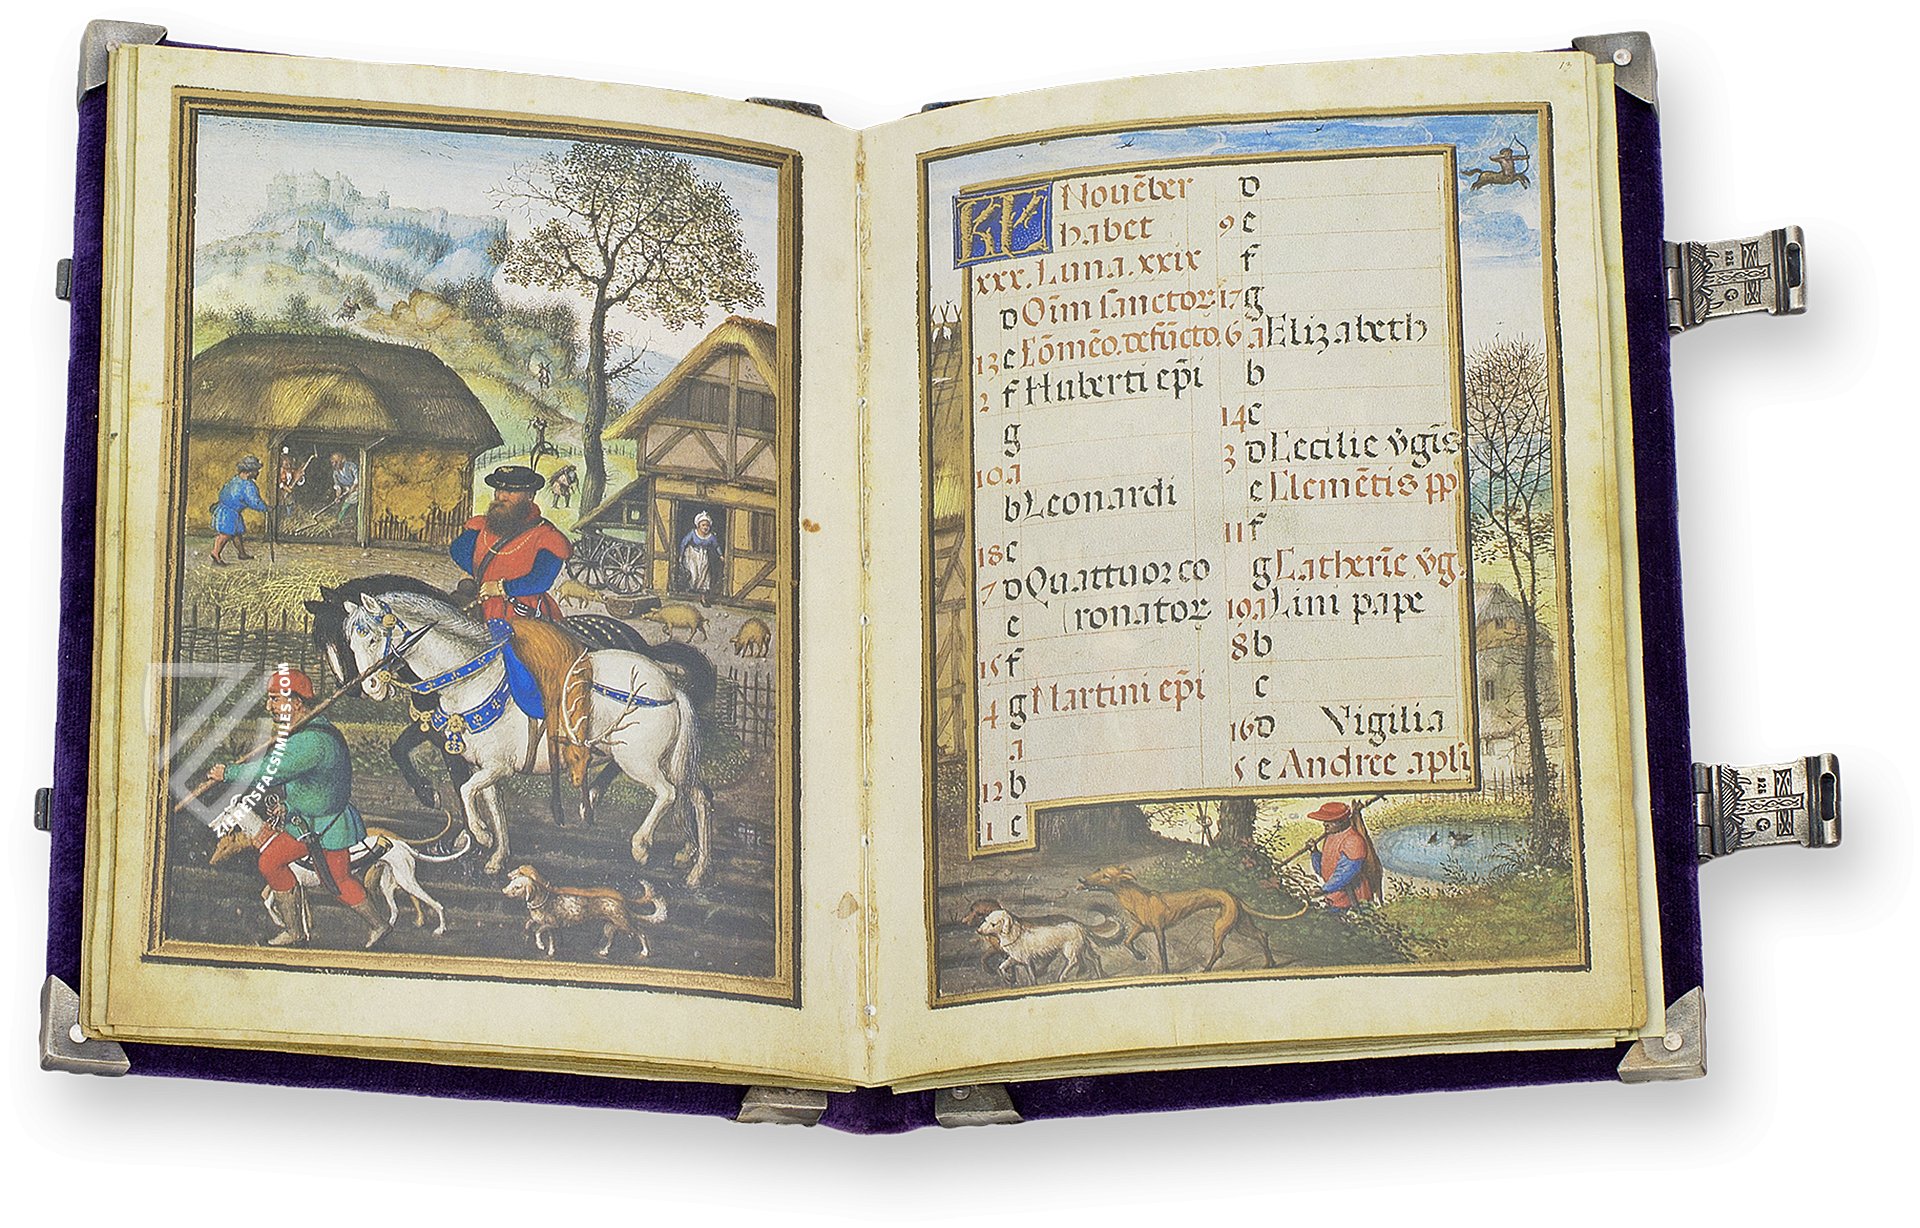 13
KL Nouēber
habet
xxx. Luna. xxix
d Oīm sanctor
13 e Cōmēo. defūcto.
2 f Huberti ep̄i
g
10 a
b Leonardi
18 c
7 d Quattuor co
e ronator
15 f
4 g Martini ep̄i
a
12 b
1 c
d
9 e
f
17 g
6 a Elizabeth
b
14 c
3 d Cecilie v̄gīs
e Clemētis pp
11 f
g Catherīe v̄g.
19 a Lini pape
8 b
c
16 d Vigilia
5 e Andree apli
ZIEREISFACSIMILES.COM
925
925